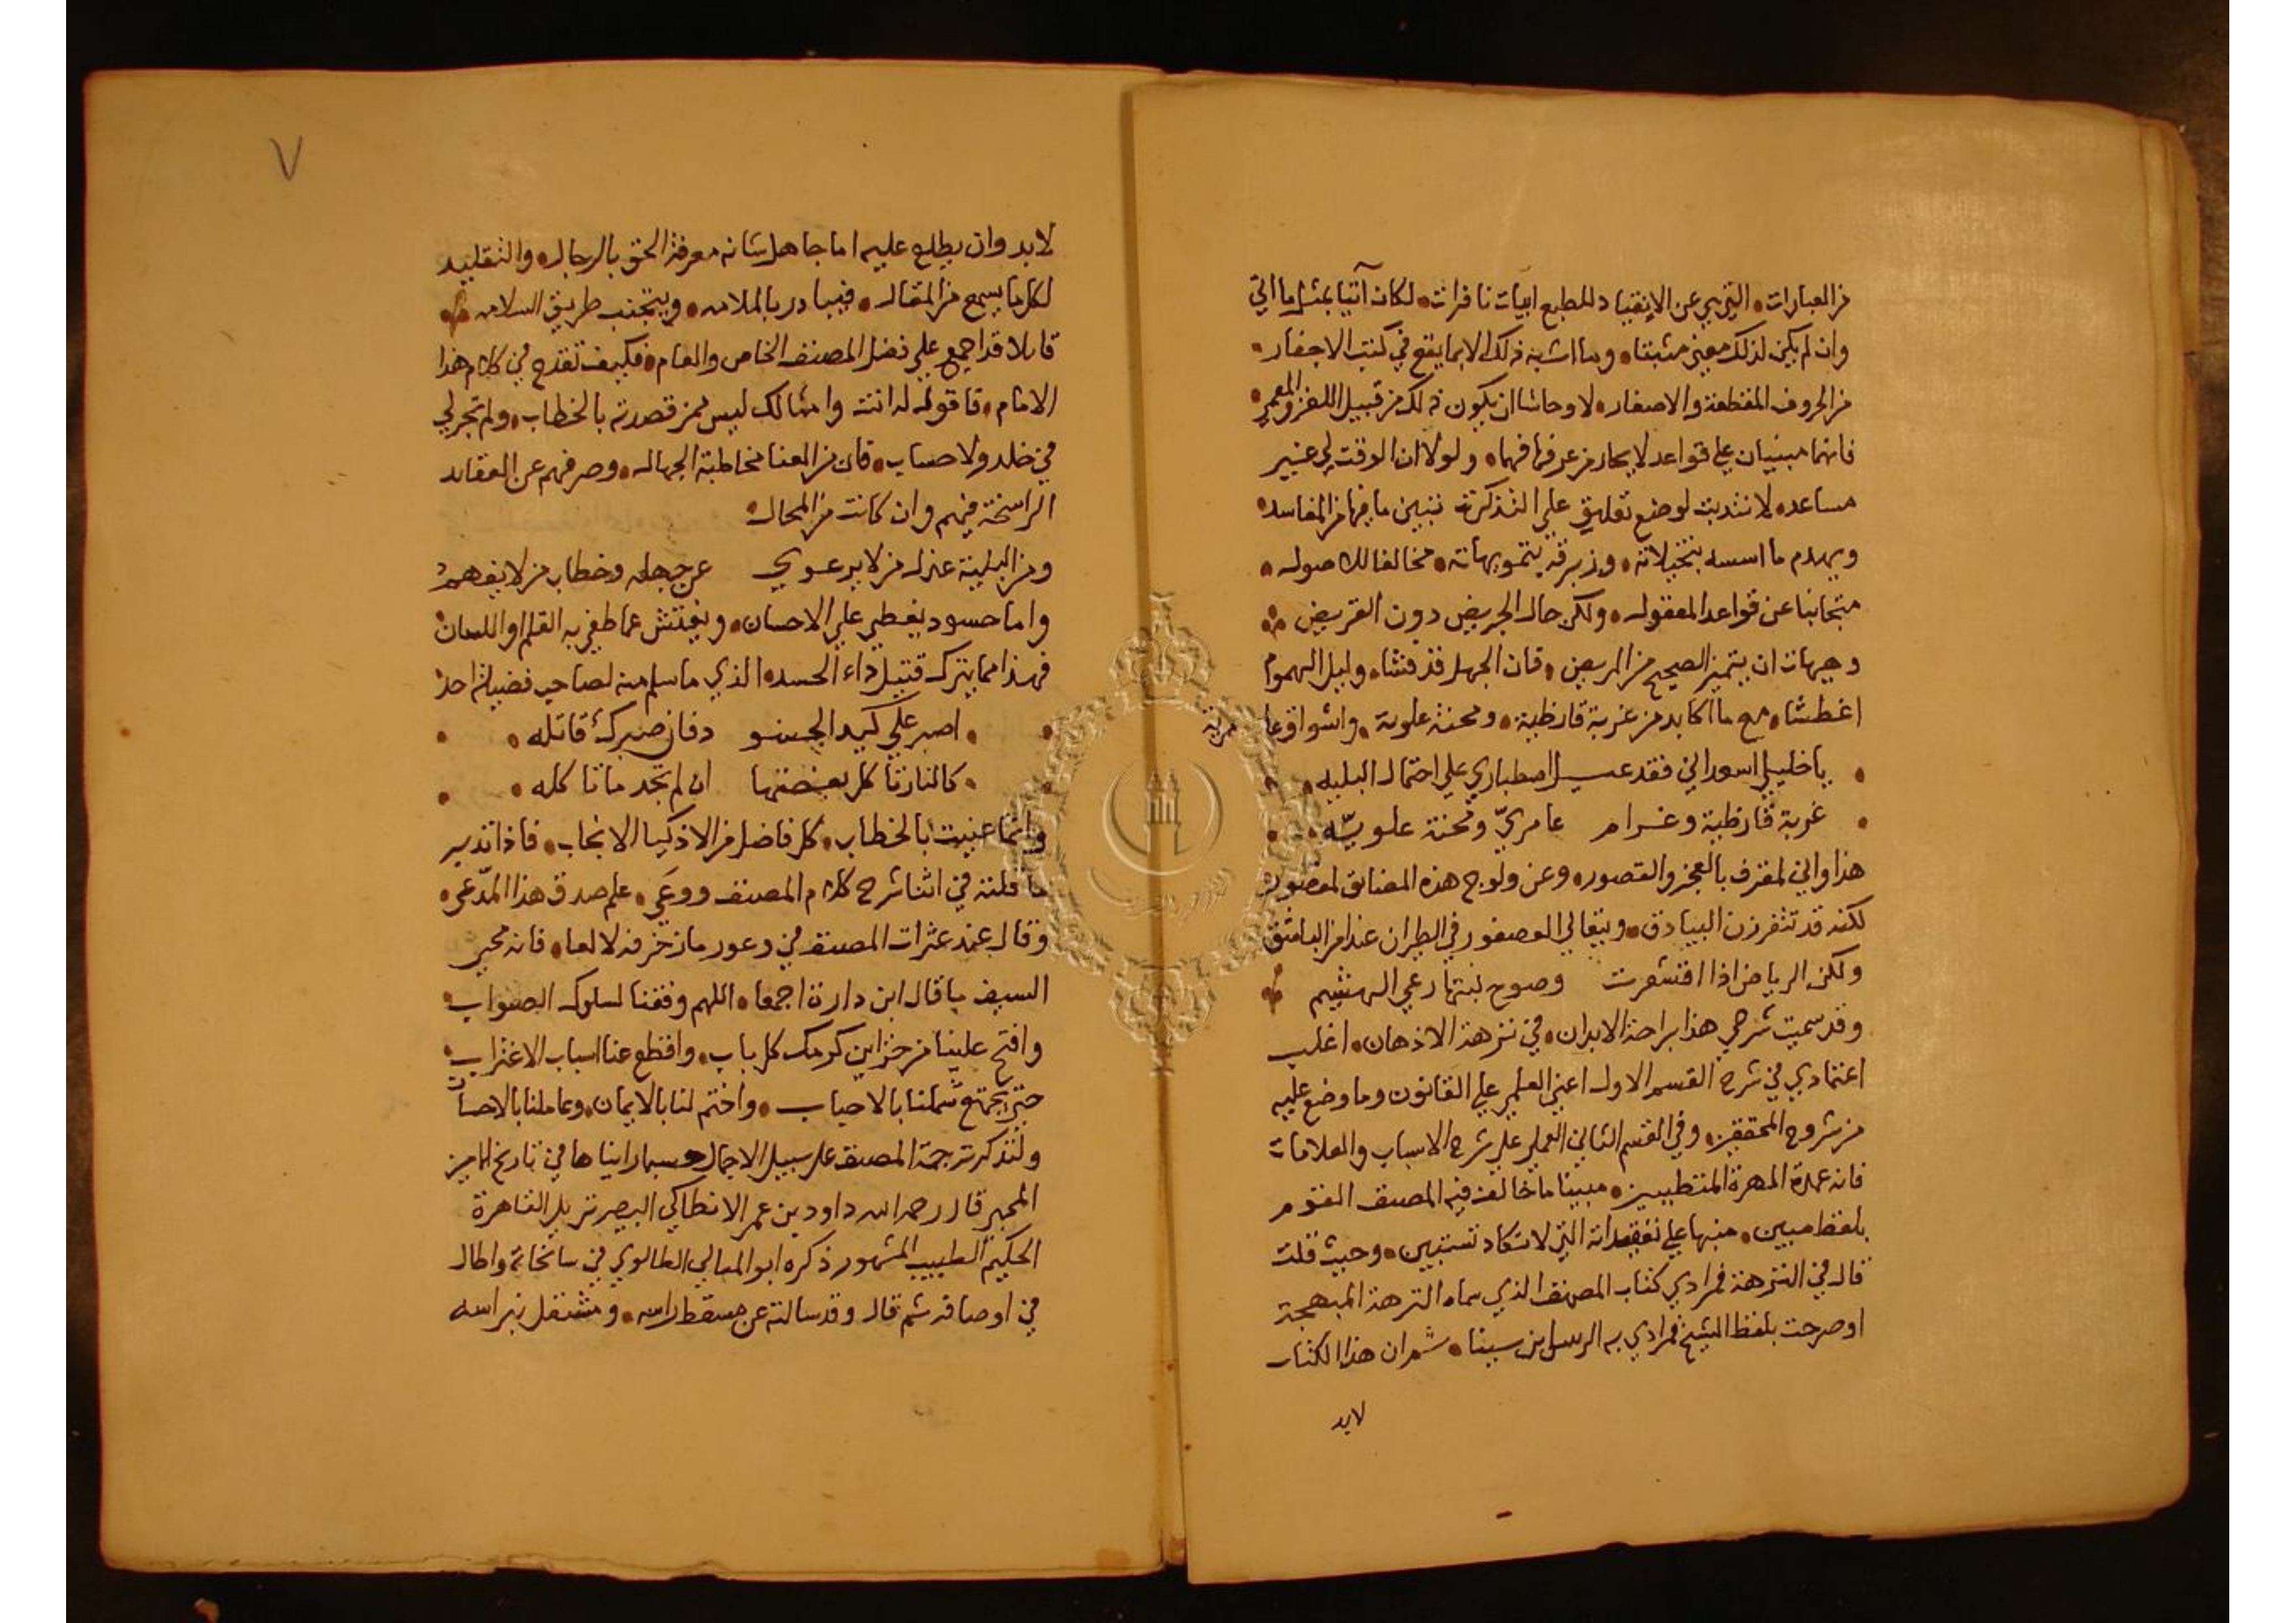 من العبارات التي هي عن الانقياد للطبع ابيات نافرات لكان آتيا بمثل ما اتي
وان لم يكن لذلك معني مثبتا وما اشبه ذلك الا بما يقع في كتب الاجفار
من الحروف المقطعة والاصفار لا وحاشا ان يكون ذلك من قبيل اللغز والمعمي
فانهما مبنيان علي قواعد لا يحار من عرفها فهما ولولا ان الوقت لي غير
مساعد لانتدبت لوضع تعليق علي التذكرة نبين ما فيها من المفاسد
ويهدم ما اسسه بتخيلاته وزبرقه بتمويهاته مخالفا للاصول
متجانبا عن قواعد المعقول ولكن حال الجريض دون القريض
وهيهات ان يتميز الصحيح من المريض فان الجهل قد فشا وليل الهموم
اغطشا مع ما اكابد من غربة قارظية ومحنة علوية واشواق عامرية
يا خليلي اسعداني فقد عيل اصطباري علي احتمال البليه
غربة قارظية وغرام عامري ومحنة علويه
هذا واني لمعترف بالعجز والقصور وعن ولوج هذه المضايق لمعصور
لكنه قد تتفرزن البيادق ويتعالي العصفور في الطيران عند امن الباشق
ولكن الرياض اذا اقشعرت وصوح نبتها رعي الهشيم
وقد سميت شرحي هذا براحة الابدان في نزهة الاذهان اغلب
اعتمادي في شرح القسم الاول اعني العلمي علي القانون وما وضع عليه
من شروح المحققين وفي القسم الثاني العملي علي شرح الاسباب والعلامات
فانه عمدة المهرة المتطببين مبينا ما خالف فيه المصنف القوم
بلفظ مبين منبها علي تعقيداته التي لا تكاد تستبين وحيث قلت
قال في النزهة فمرادي كتاب المصنف الذي سماه النزهة المبهجة
او صرحت بلفظ الشيخ فمرادي به الرئيس ابن سينا ثم ان هذا الكتاب
لابد
٧
لابد وان يطلع عليه اما جاهل شانه معرفة الحق بالرجال والتقليد
لكل ما يسمع من المقال فيبادر بالملامه ويتجنب طريق السلامه
قايلا قد اجمع علي فضل المصنف الخاص والعام فكيف تقدح في كلام هذا
الامام فاقول له انت وامثالك ليس ممن قصدته بالخطاب ولم تجر لي
في خلد ولا حساب فان من العنا مخاطبة الجهال وصرفهم عن العقايد
الراسخة فيهم وان كانت من المحال
ومن البلية عذل من لا يرعوي عن جهله وخطاب من لا يفهم
واما حسود يغطي علي الاحسان ويفتش عما طغي به القلم او اللسان
فهذا مما يترك قتيل داء الحسد الذي ما سلم منه لصاحب فضيلة احد
اصبر علي كيد الحسو د فان صبرك قاتله
كالنار تاكل بعضها ان لم تجد ما تاكله
وانما عنيت بالخطاب كل فاضل من الاذكيا الانجاب فاذا تدبر
ما قلته في اثنا شرح كلام المصنف ووعي علم صدق هذا المدعي
وقال عند عثرات المصنف في وعور ما زخرفه لا لعا فانه محي
السيف ما قال ابن دارة اجمعا اللهم وفقنا لسلوك الصواب
وافتح علينا من خزاين كرمك كل باب واقطع عنا اسباب الاغتراب
حتي يجتمع شملنا بالاحباب واختم لنا بالايمان وعاملنا بالاحسان
ولنذكر ترجمة المصنف علي سبيل الاجمال حسبما رايناها في تاريخ الامين
المحبي قال رحمه الله داود بن عمر الانطاكي البصير نزيل القاهرة
الحكيم الطبيب المشهور ذكره ابو المعالي الطالوي في سانحاته واطال
في اوصافه ثم قال وقد سالته عن مسقط راسه ومشتعل نبراسه